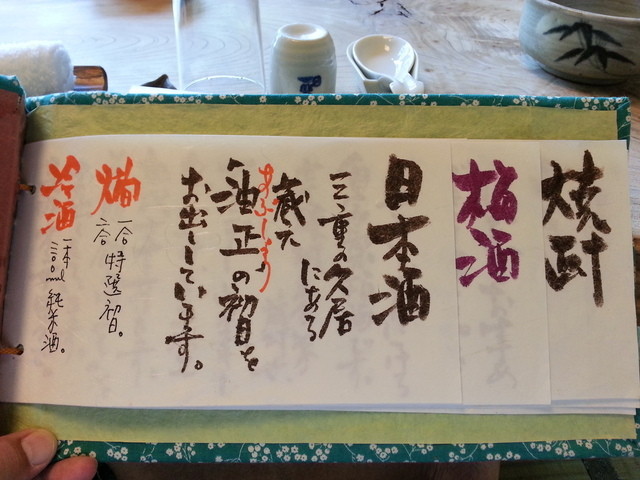 焼酎
梅酒
日本酒
三重の久居
にある
蔵元
あぶしょう
油正の初日を
お出ししています。
燗
一合 特選初日。
冷酒
一本 三〇〇ml 純米酒。